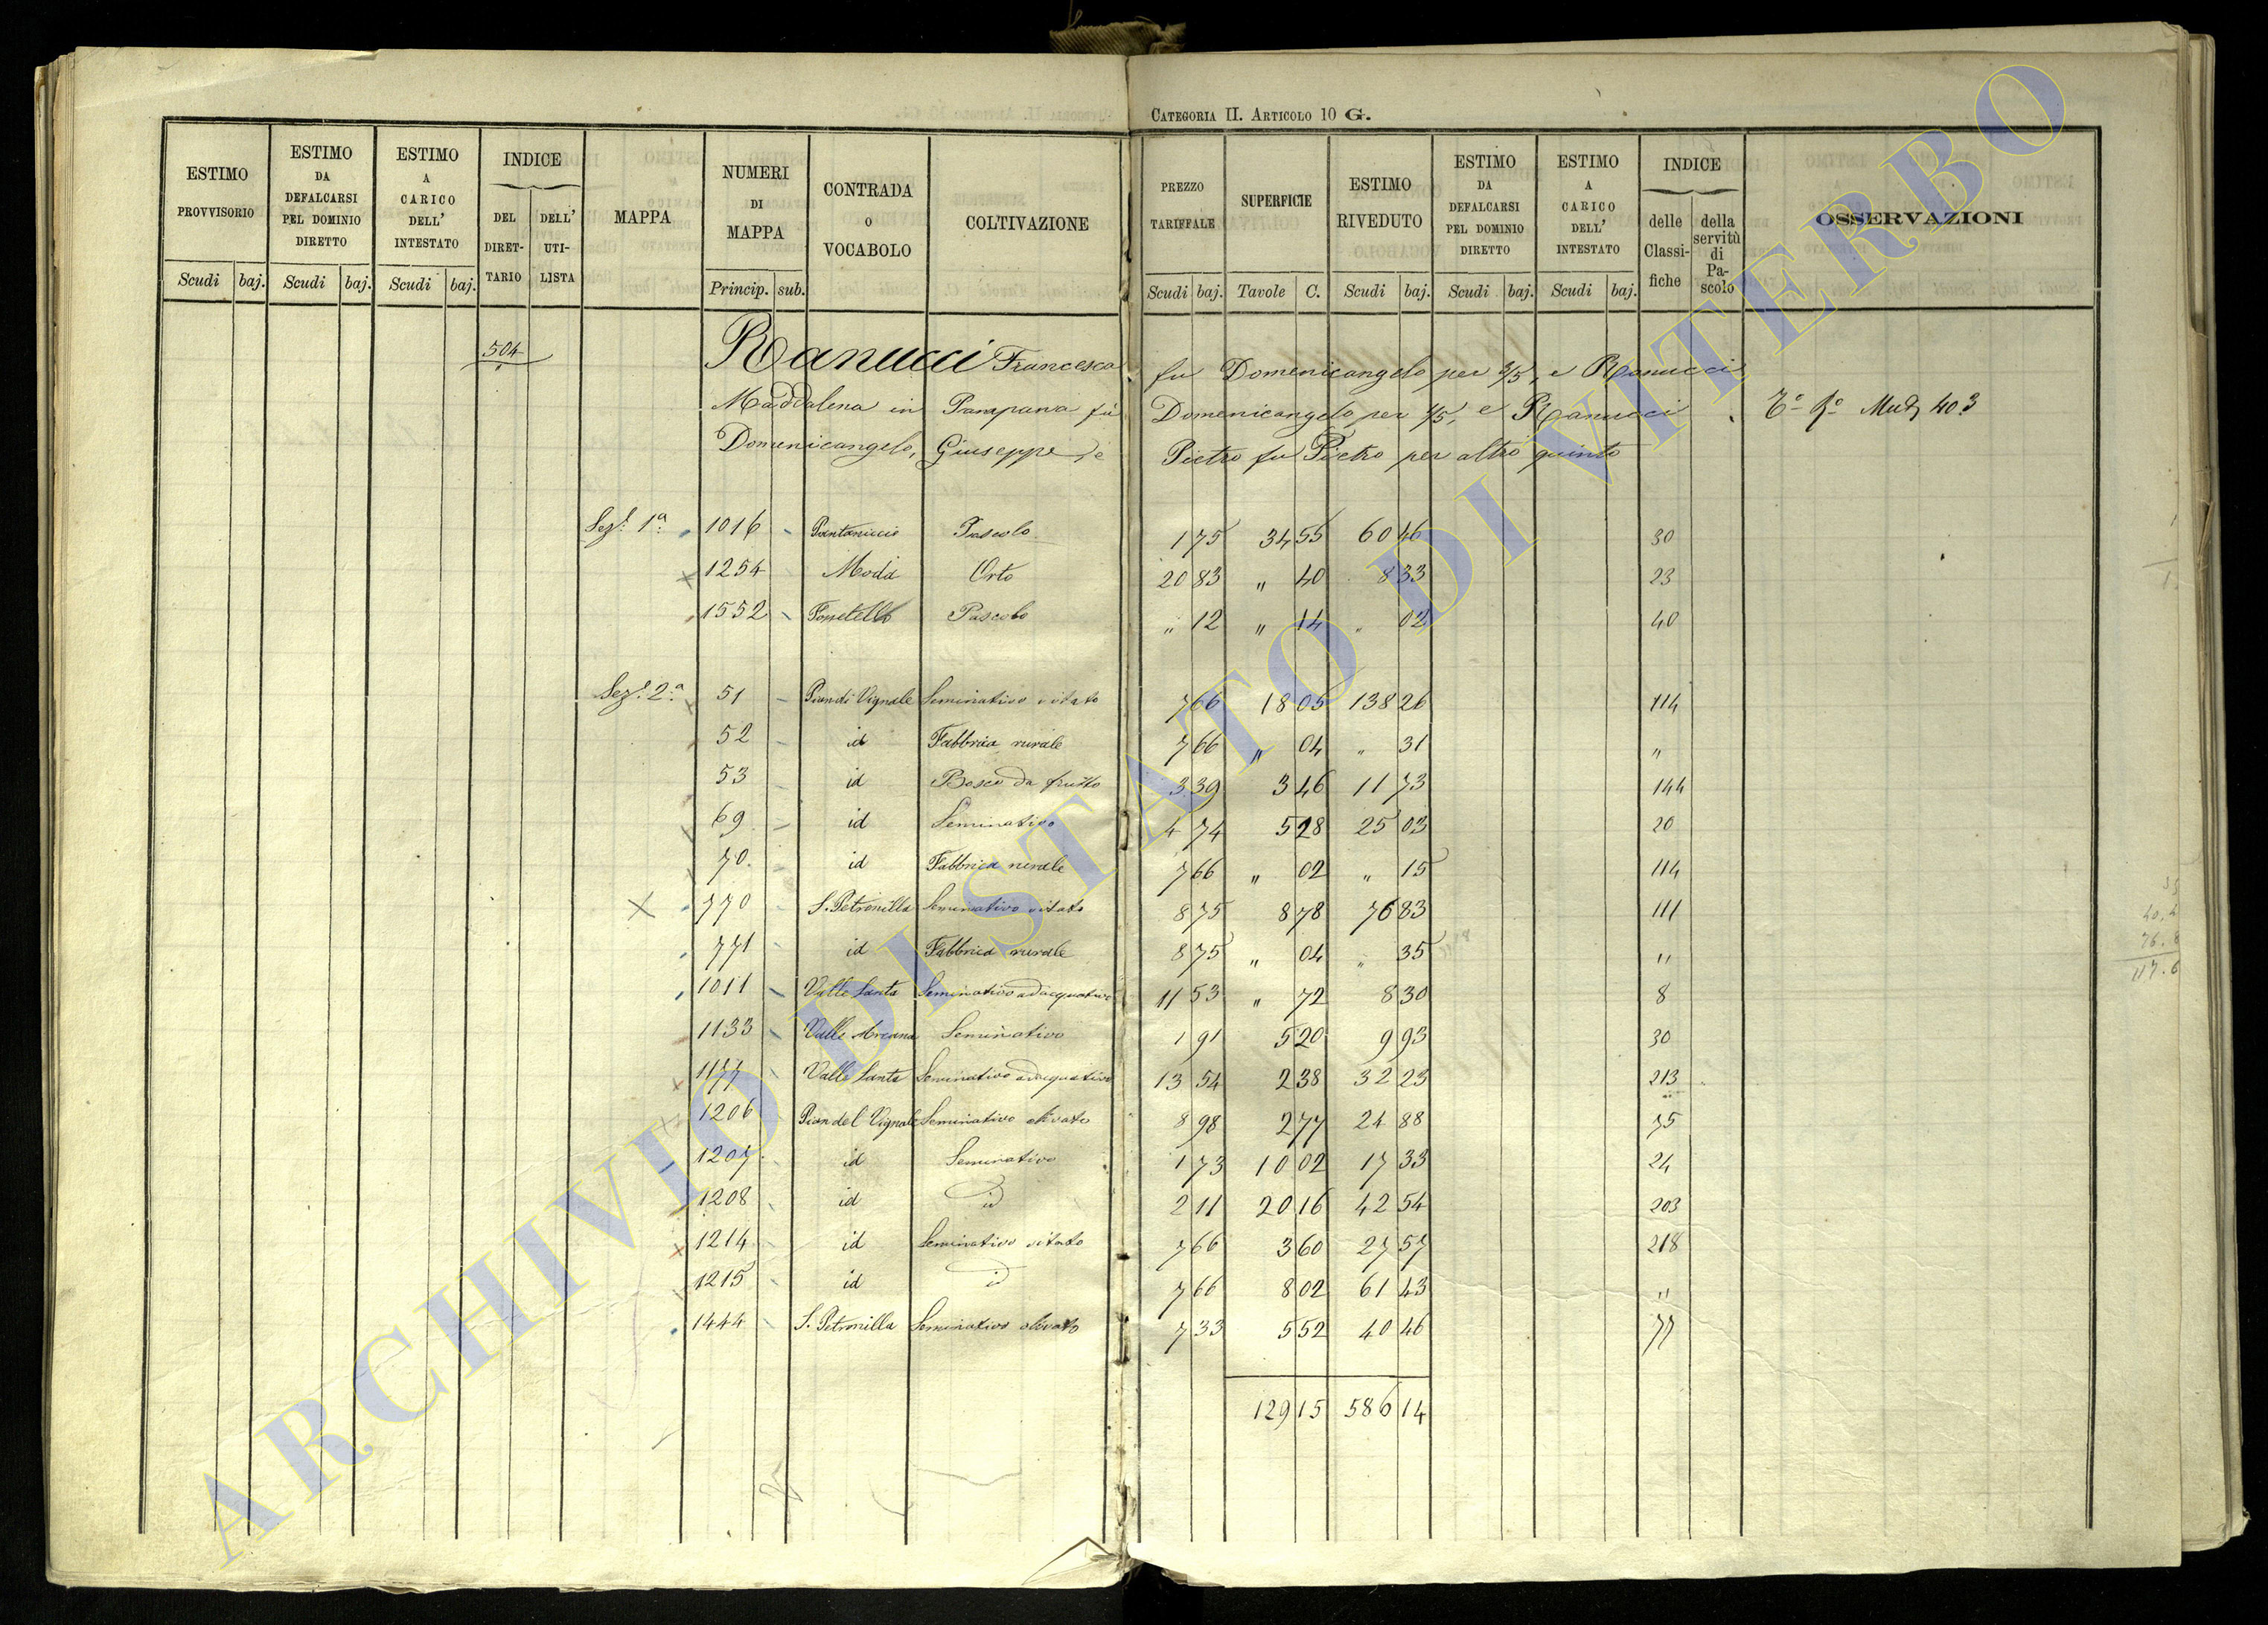 CATEGORIA II. ARTICOLO 10 G.
ESTIMO PROVVISORIO Scudi baj.
ESTIMO DA DEFALCARSI PEL DOMINIO DIRETTO Scudi baj.
ESTIMO A CARICO DELL' INTESTATO Scudi baj.
INDICE DEL DIRET-TARIO DELL' UTI-LISTA
MAPPA
NUMERI DI MAPPA Princip. sub.
CONTRADA O VOCABOLO
COLTIVAZIONE
PREZZO TARIFFALE Scudi baj.
SUPERFICIE Tavole C.
ESTIMO RIVEDUTO Scudi baj.
ESTIMO DA DEFALCARSI PEL DOMINIO DIRETTO Scudi baj.
ESTIMO A CARICO DELL' INTESTATO Scudi baj.
INDICE delle Classi-fiche della servitù di Pa-scolo
OSSERVAZIONI
504 Ranucci Francesca fu Domenicangelo per 2/5, e Ranucci
Maddalena in Pampana fu Domenicangelo per 1/5, e Ranucci
Domenicangelo, Giuseppe, e Pietro fu Pietro per altro quinto
40.3
Sez.e 1a 1016 Pantaniccio Pascolo 1 75 34 55 60 46 30
1254 Moda Orto 20 83 " 40 8 33 23
1552 Pascolo " 12 " 14 " 02 40
Sez.e 2.a 51 Pian di Vignale Seminativo vitato 7 66 18 05 138 26 114
52 id Fabbrica rurale 7 66 " 04 " 31 "
53 id Bosco da frutto 3 39 3 46 11 73 144
69 id Seminativo 4 74 5 28 25 03 20
70 id Fabbrica rurale 7 66 " 02 " 15 114
X 770 S. Petronilla Seminativo vitato 8 75 8 78 76 83 111
771 id Fabbrica rurale 8 75 " 04 " 35 "
1011 Valle Santa Seminativo adacquativo 11 53 " 72 8 30 8
1133 Valle Arcana Seminativo 1 91 5 20 9 93 30
1177 Valle Santa Seminativo adacquativo 13 54 2 38 32 23 213
1206 Pian del Vignale Seminativo olivato 8 98 2 77 24 88 75
1207 id Seminativo 1 73 10 02 17 33 24
1208 id id 2 11 20 16 42 54 203
1214 id Seminativo vitato 7 66 3 60 27 57 218
1215 id id 7 66 8 02 61 43 "
1444 S. Petronilla Seminativo olivato 7 33 5 52 40 46 77
129 15 586 14
ARCHIVIO DI STATO DI VITERBO